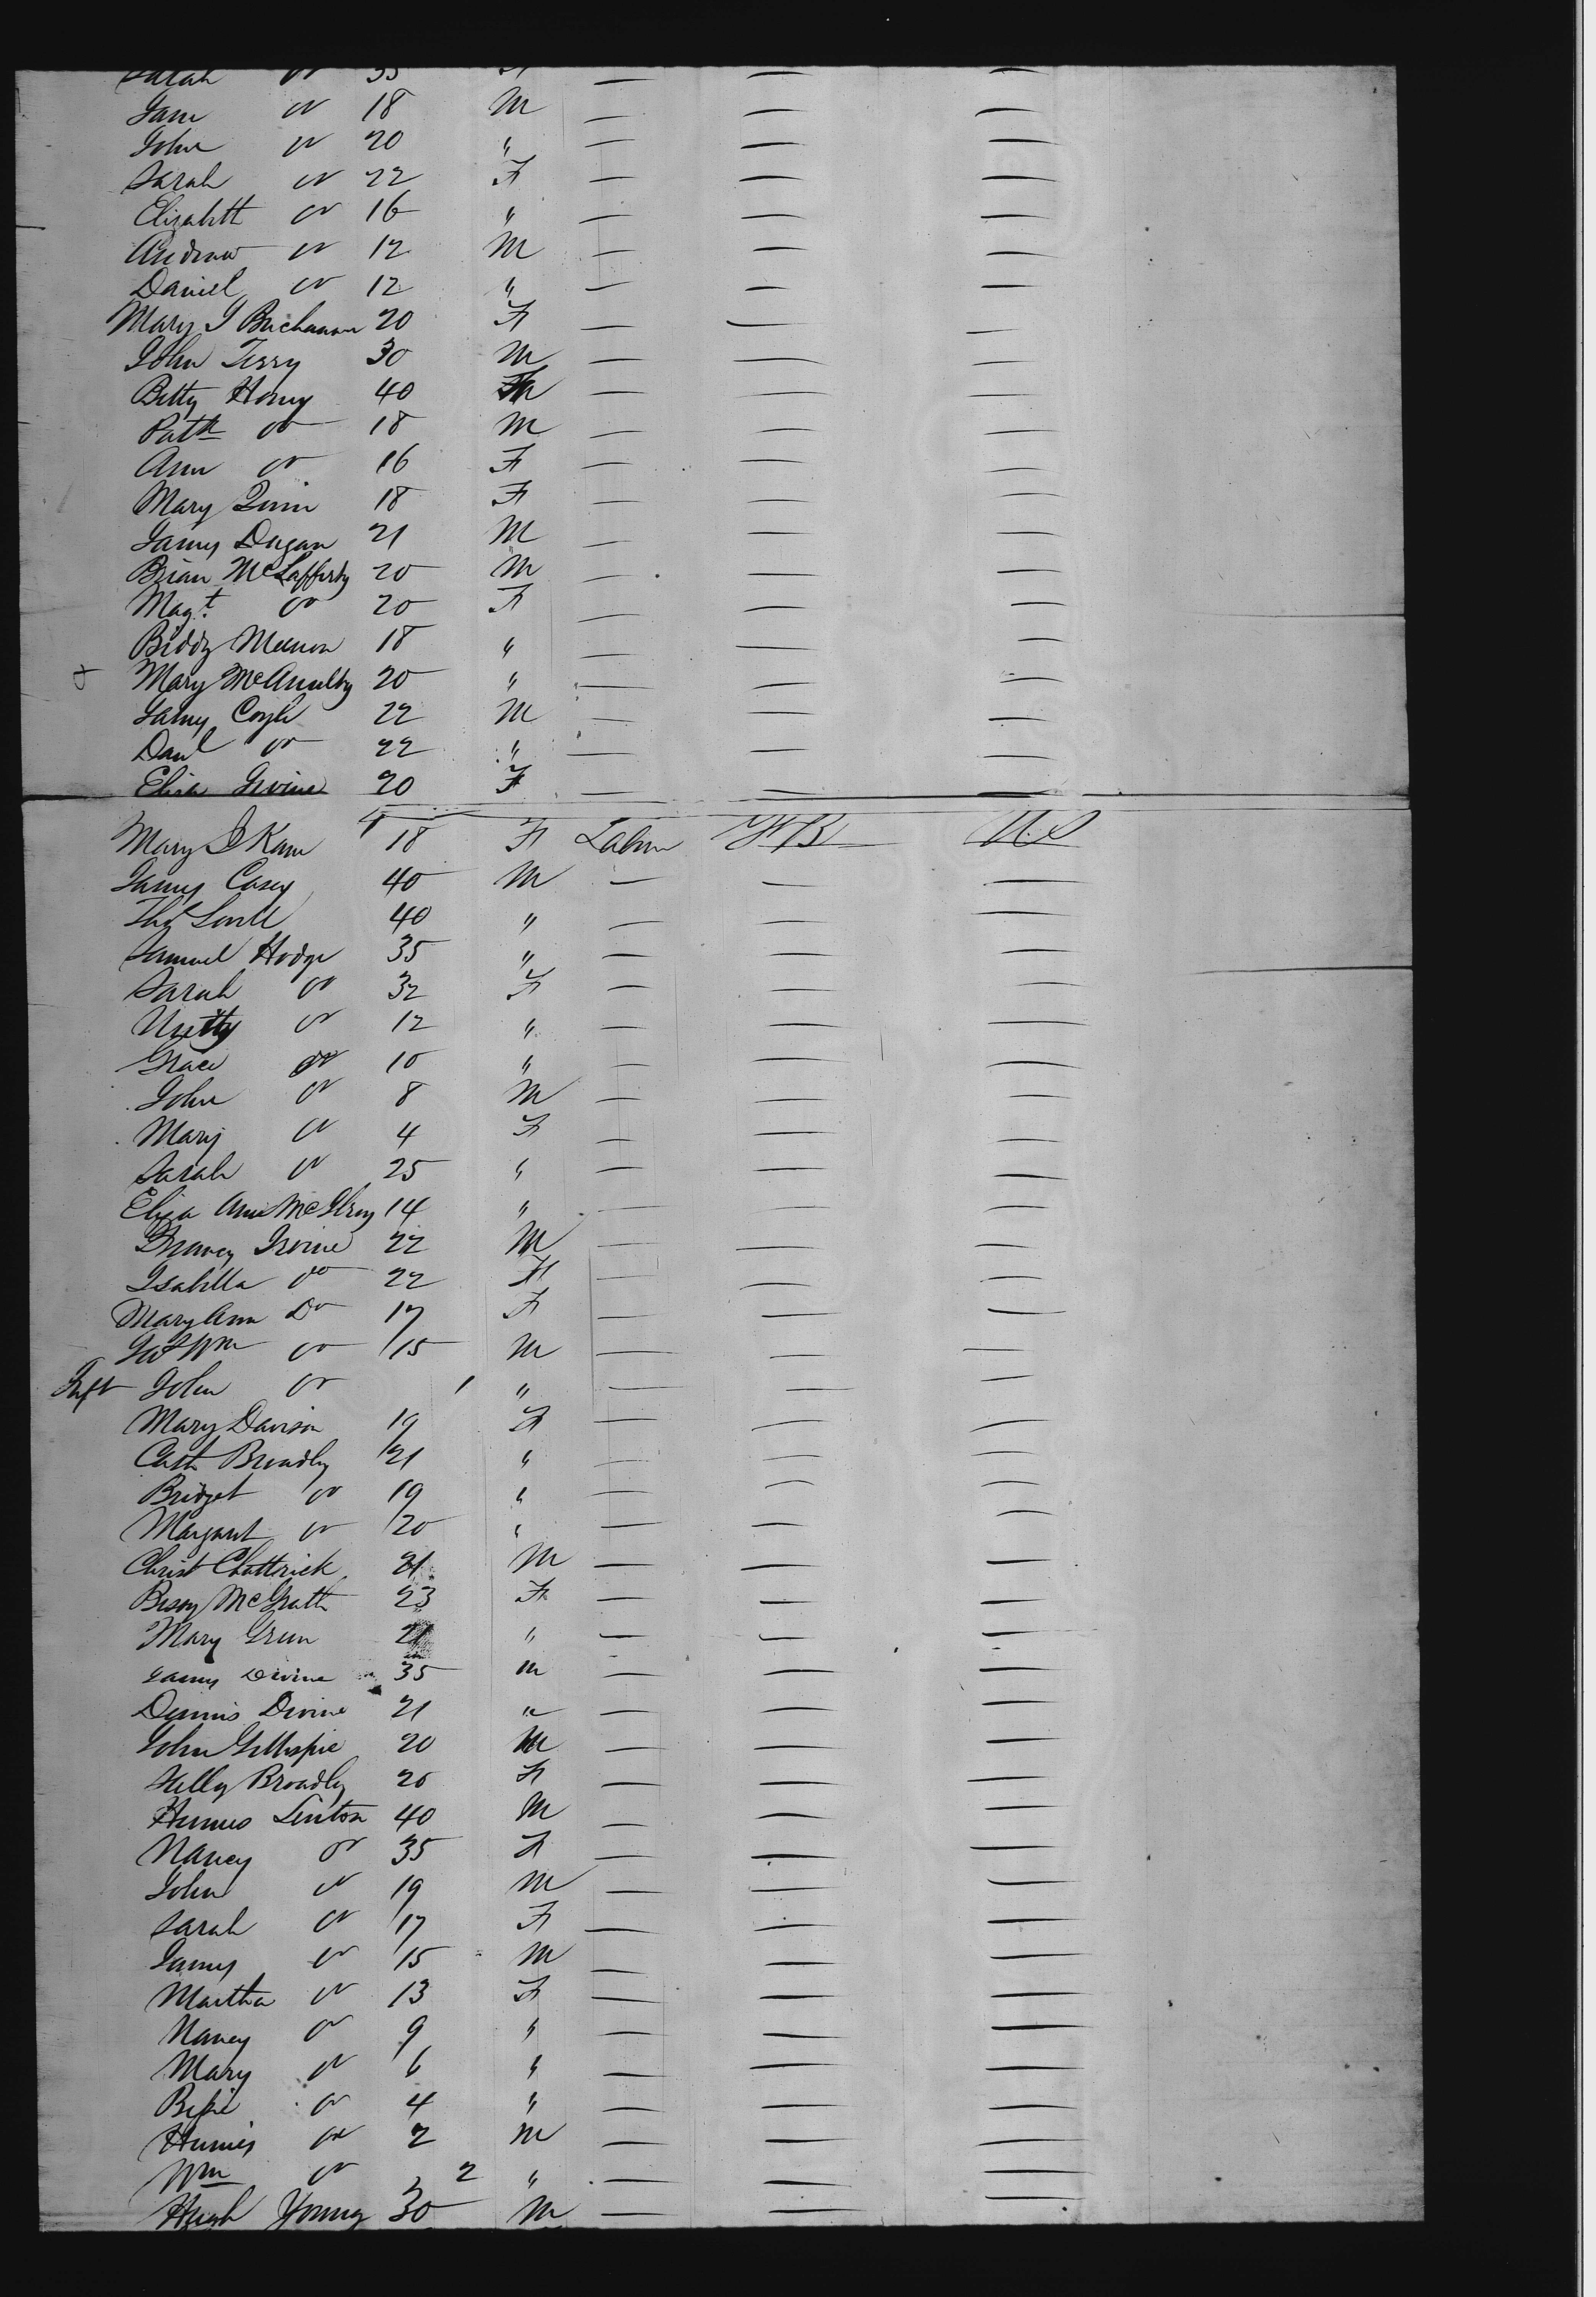 Sarah do 35 F — — —
Jam do 18 M — — —
John do 20 " — — —
Sarah do 22 F — — —
Elizabeth do 16 " — — —
Andrew do 12 M — — —
Daniel do 12 " — — —
Mary J Buchanan 20 F — — —
John Terry 30 M — — —
Betty Henry 40 — — —
Patk do 18 M — — —
Ann do 16 F — — —
Mary Quin 18 F — — —
James Dugan 21 M — — —
Brian McLafferty 20 M — — —
Magt. do 20 F — — —
Biddy 18 " — — —
Mary McAnulty 20 " — — —
James Coyle 22 M — — —
Danl do 22 " — — —
Eliza Irvine 20 F — — —
Mary J Kane 18 F Labor U.S
James Casey 40 M — — —
Thos 40 " — — —
Samuel Hodge 35 " — — —
Sarah do 32 F — — —
do 12 " — — —
Grace do 10 " — — —
John do 8 M — — —
Mary do 4 F — — —
Sarah do 25 " — — —
Eliza Ann McElroy 14 " — — —
Irvine 22 M — — —
Isabella do 22 F — — —
Mary Ann Do 17 F — — —
Wm do 15 M — — —
Inft John do 1 " — — —
Mary Davison 19 F — — —
Cath Broadly 21 " — — —
Bridget do 19 " — — —
Margaret do 20 " — — —
Christ Chittrick 21 M — — —
McGrath 23 F — — —
Mary Green 21 " — — —
James Devine 35 m — — —
Dennis Devine 21 " — — —
John Gillespie 20 M — — —
Broadly 20 F — — —
Humes Linton 40 M — — —
Nancy do 35 F — — —
John do 19 M — — —
Sarah do 17 F — — —
James do 15 M — — —
Martha do 13 F — — —
Nancy do 9 " — — —
Mary do 6 " — — —
Bessie do 4 " — — —
Humes do 2 M — — —
Wm do 2 " — — —
Hugh Young 30 M — — —